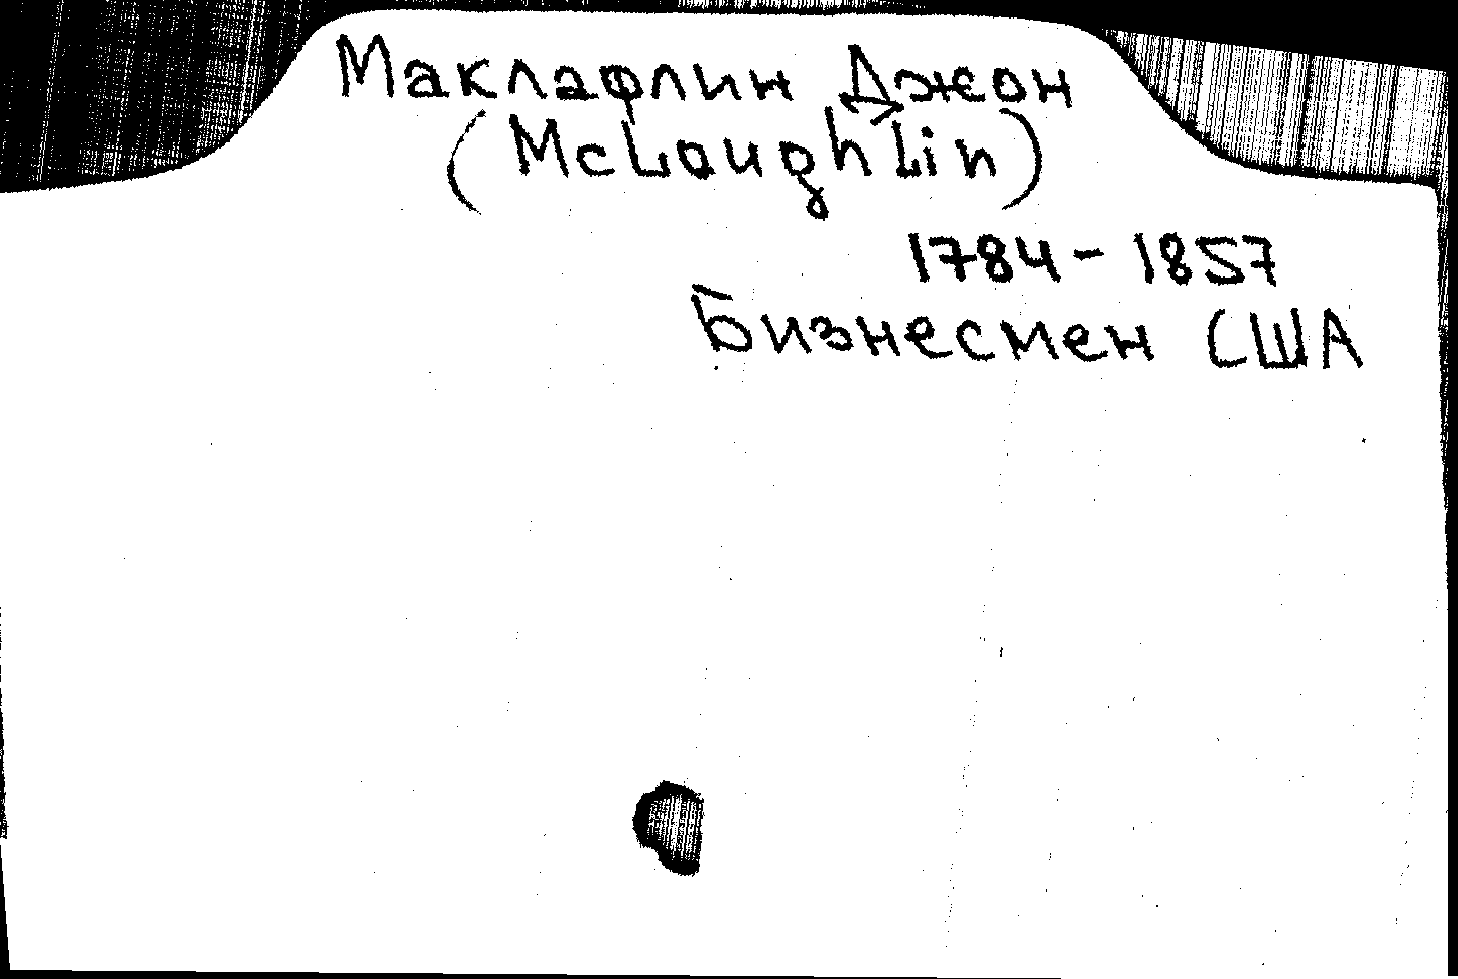 Маклафлин Джон
(McLoughlin)
1784-1857
Бизнесмен США